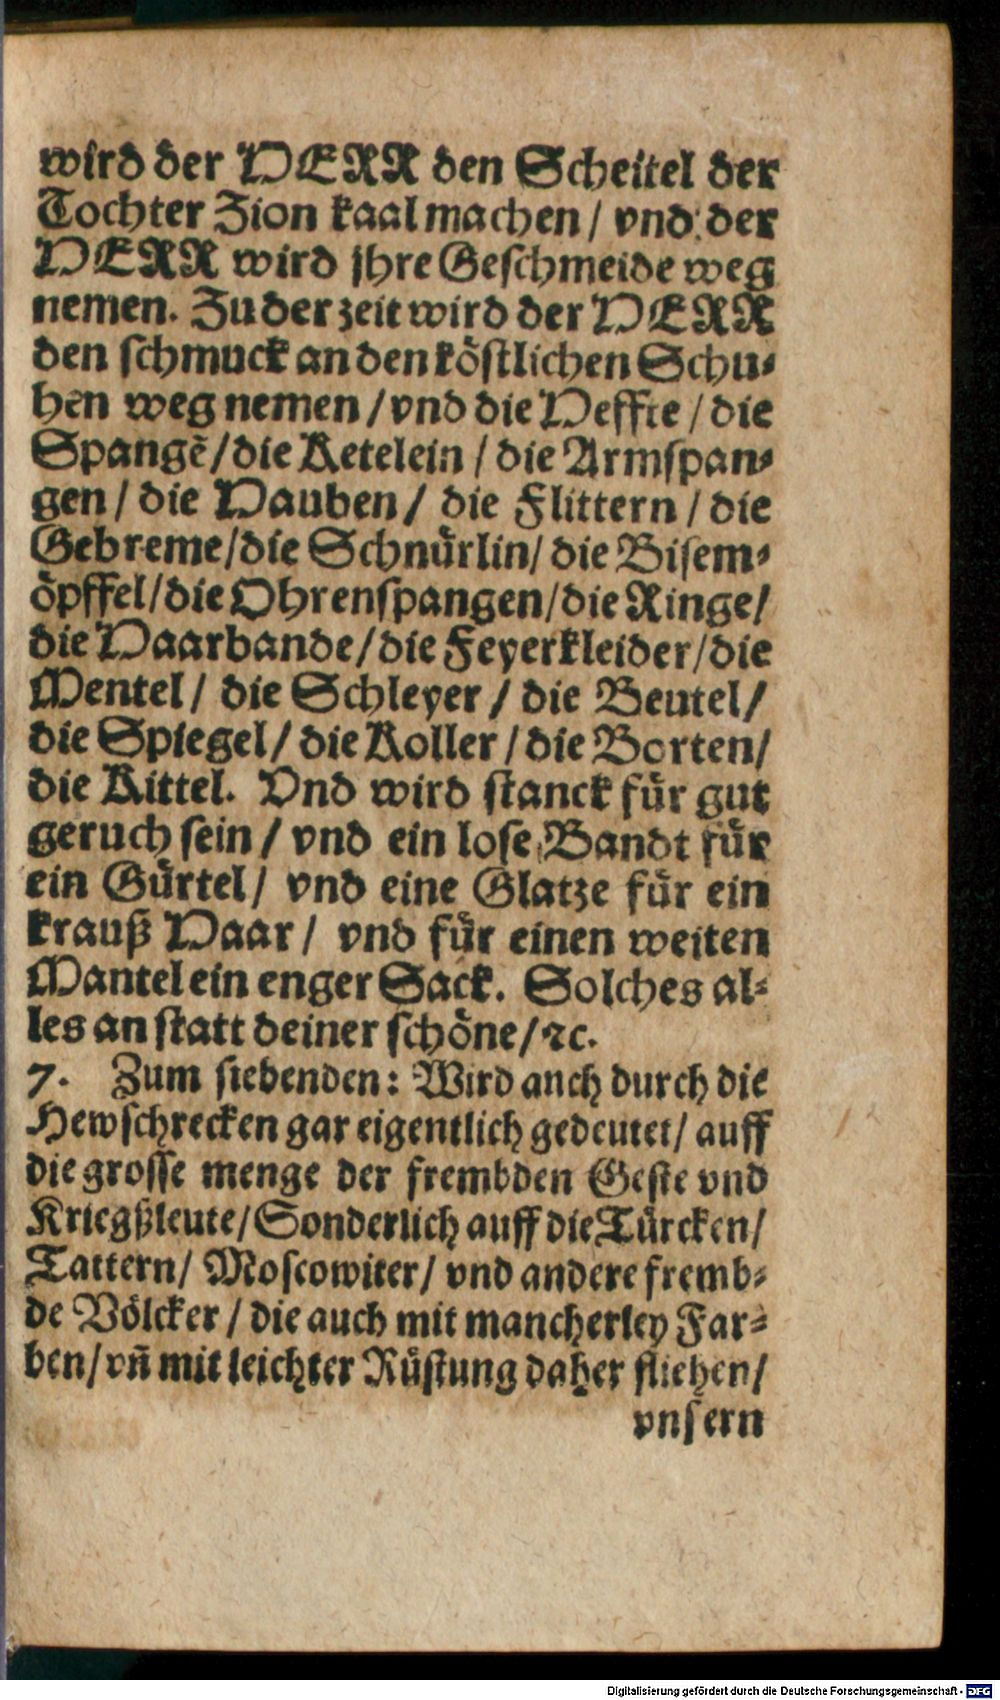 wird der HERR den Scheitel der
Tochter Zion kaal machen / vnd der
HERR wird jhre Geschmeide weg
nemen. Zu der zeit wird der HERR
den schmuck an den köstlichen Schu⸗
hen weg nemen / vnd die Heffte / die
Spangē / die Ketelein / die Armspan⸗
gen / die Hauben / die Flittern / die
Gebreme / die Schnürlin / die Bisem⸗
öpffel / die Ohrenspangen / die Ringe /
die Haarbande / die Feyerkleider / die
Mentel / die Schleyer / die Beutel /
die Spiegel / die Koller / die Borten /
die Kittel. Vnd wird stanck für gut
geruch sein / vnd ein lose Bandt für
ein Gürtel / vnd eine Glatze für ein
krauß Haar / vnd für einen weiten
Mantel ein enger Sack. Solches al⸗
les an statt deiner schöne / ꝛc.
7. Zum siebenden: Wird auch durch die
Hewschrecken gar eigentlich gedeutet / auff
die grosse menge der frembden Geste vnd
Kriegßleute / Sonderlich auff die Türcken /
Tattern / Moscowiter / vnd andere fremb⸗
de Völcker / die auch mit mancherley Far⸗
ben / vn̄ mit leichter Rüstung daher fliehen /
vnsern
Digitalisierung gefördert durch die Deutsche Forschungsgemeinschaft - DFG